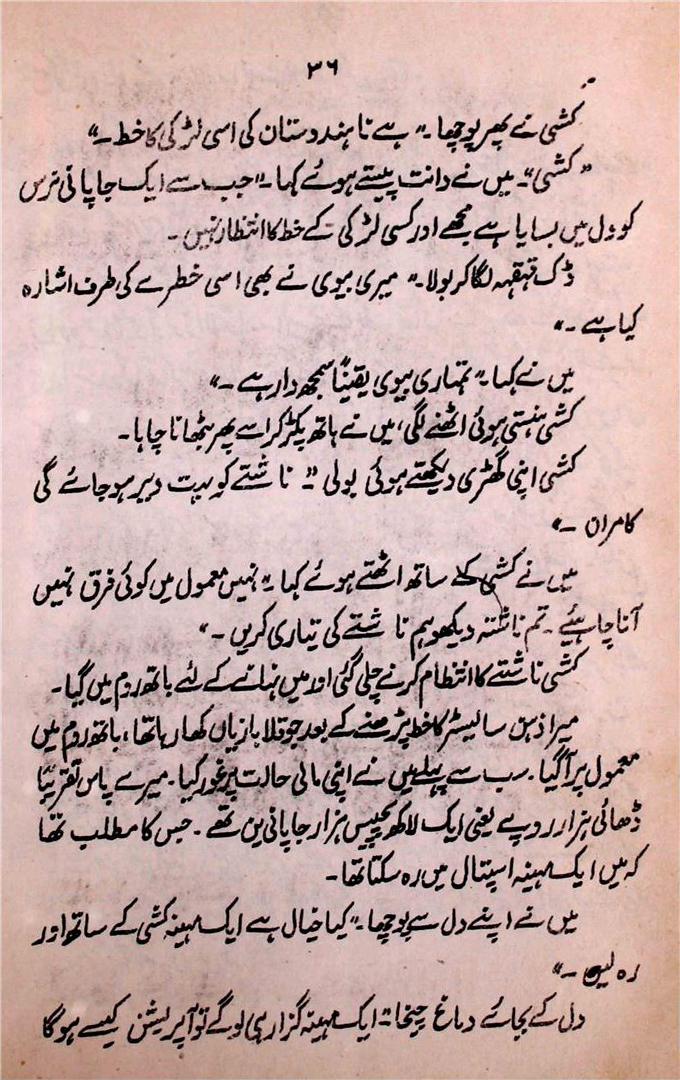 ۳۶
کشی نے پھر پوچھا۔ "ہے نا ہندوستان کی اسی لڑکی کا خط۔"
"کشی"۔ میں نے دانت پیستے ہوئے کہا۔ "جب سے ایک جاپانی نرس
کو دل میں بسایا ہے مجھے اور کسی لڑکی کے خط کا انتظار نہیں۔
ڈک قہقہہ لگا کر بولا۔ "میری بیوی نے بھی اسی خطرے کی طرف اشارہ
کیا ہے۔"
میں نے کہا۔ "تمہاری بیوی یقیناً سمجھ دار ہے۔"
کشی ہنستی ہوئی اٹھنے لگی، میں نے ہاتھ پکڑ کر اسے پھر بٹھانا چاہا۔
کشی اپنی گھڑی دیکھتے ہوئی بولی "۔ ناشتے کو بہت دیر ہو جائے گی
کامران۔"
میں نے کشی کے ساتھ اٹھتے ہوئے کہا۔ "نہیں معمول میں کوئی فرق نہیں
آنا چاہیئے۔ تم ناشتہ دیکھو ہم ناشتے کی تیاری کریں۔"
کشی ناشتے کا انتظام کرنے چلی گئی اور میں نہانے کے لئے باتھ روم میں گیا۔
میرا ذہن سائیسٹر کا خط پڑھنے کے بعد جو قلابازیاں کھا رہا تھا، باتھ روم میں
معمول پر آ گیا۔ سب سے پہلے میں نے اپنی مالی حالت پر غور کیا۔ میرے پاس تقریبًا
ڈھائی ہزار روپے یعنی ایک لاکھ پچیس ہزار جاپانی ین تھے۔ جس کا مطلب تھا
کہ میں ایک مہینہ اسپتال میں رہ سکتا تھا۔
میں نے اپنے دل سے پوچھا۔ "کیا خیال ہے ایک مہینہ کشی کے ساتھ اور
رہ لیں۔"
دل کے بجائے دماغ چیخا "۔ ایک مہینہ گزار ہی لو گے تو آپریشن کیسے ہوگا